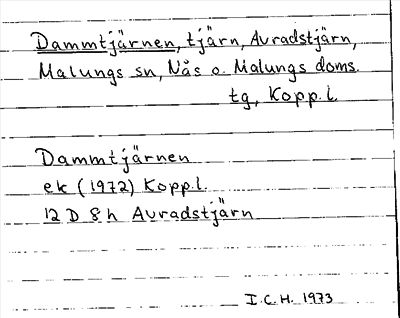 Dammtjärnen, tjärn, Avradstjärn,
Malungs sn, Nås o. Malungs doms.
tg, Kopp.l.
Dammtjärnen
ek (1972) Kopp.l.
12 D 8 h Avradstjärn
I.C.H. 1973